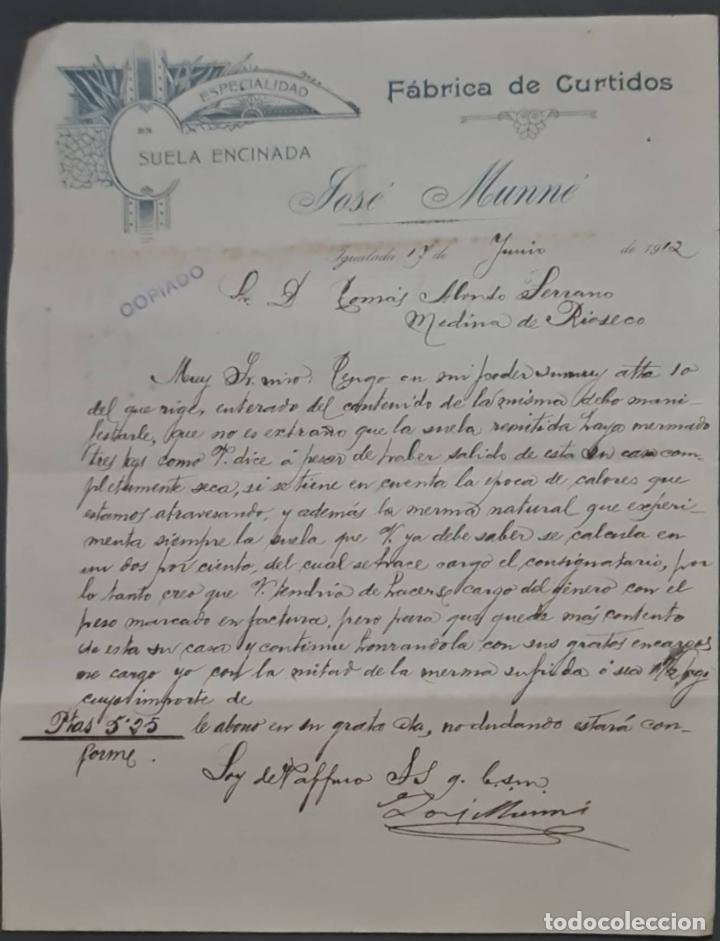 ESPECIALIDAD
EN
SUELA ENCINADA
Fábrica de Curtidos
José Munné
Igualada 17 de Junio de 1912
COPIADO
Sr. D. Tomás Alonso Serrano
Medina de Rioseco
Muy Sr. mio: Tengo en mi poder su muy atta 10
del que rige, enterado del contenido de la misma debo mani-
festarle, que no es extraño que la suela remitida haya mermado
tres kgs como V. dice á pesar de haber salido de esta su casa com-
pletamente seca, si se tiene en cuenta la epoca de calores que
estamos atravesando, y además la merma natural que experi-
menta siempre la suela que V. ya debe saber se calcula en
un dos por ciento, del cual se hace cargo el consignatario, por
lo tanto creo que V. tendria de hacerse cargo del género con el
peso marcado en factura, pero para que quede más contento
de esta su casa y continue honrandola con sus gratos encargos
me cargo yo con la mitad de la merma sufrida ó sea 1 1/2 kgs
cuyo importe de
Ptas 5'25 le abono en su grata cta, no dudando estará con-
forme.
Soy de V. affmo S S q. b. s. m.
José Munné
todocoleccion
todocoleccion.net